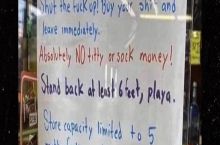 Shut the fuck up! Buy your shit and
leave immediately.
Absolutely NO titty or sock money!
Stand back at least 6 feet, playa.
Store capacity limited to 5